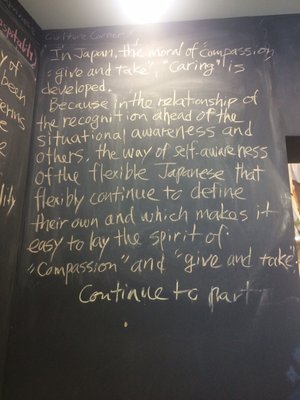 Culture Corner
"In Japan, the moral of "compassion
"give and take", "caring" is
developed.
Because in the relationship of
the recognition ahead of the
situational awareness and
others, the way of self-awareness
of the flexible Japanese that
flexibly continue to define
their own and which makes it
easy to lay the spirit of
"Compassion" and "give and take".
Continue to part
y of
been